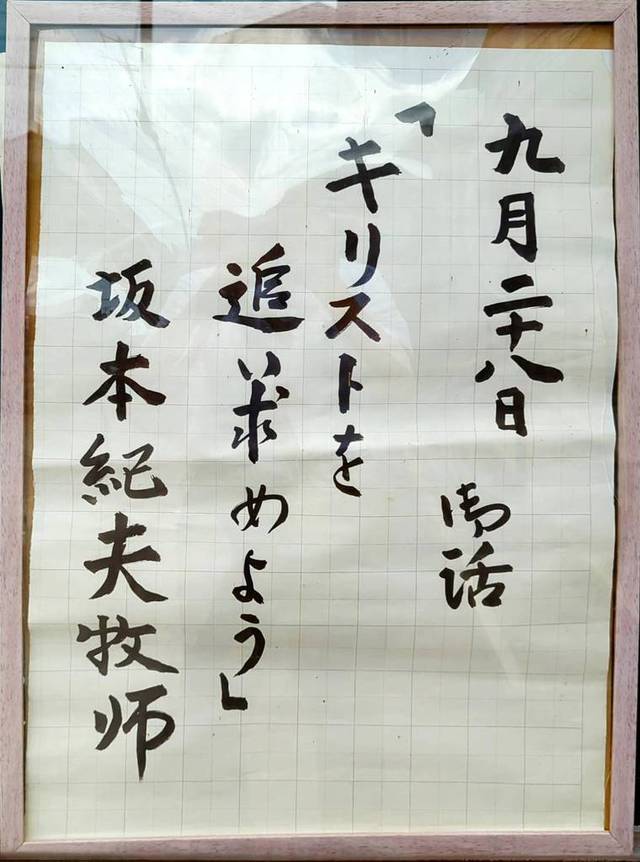 九月二十八日 御話
「キリストを
追い求めよう」
坂本紀夫牧师